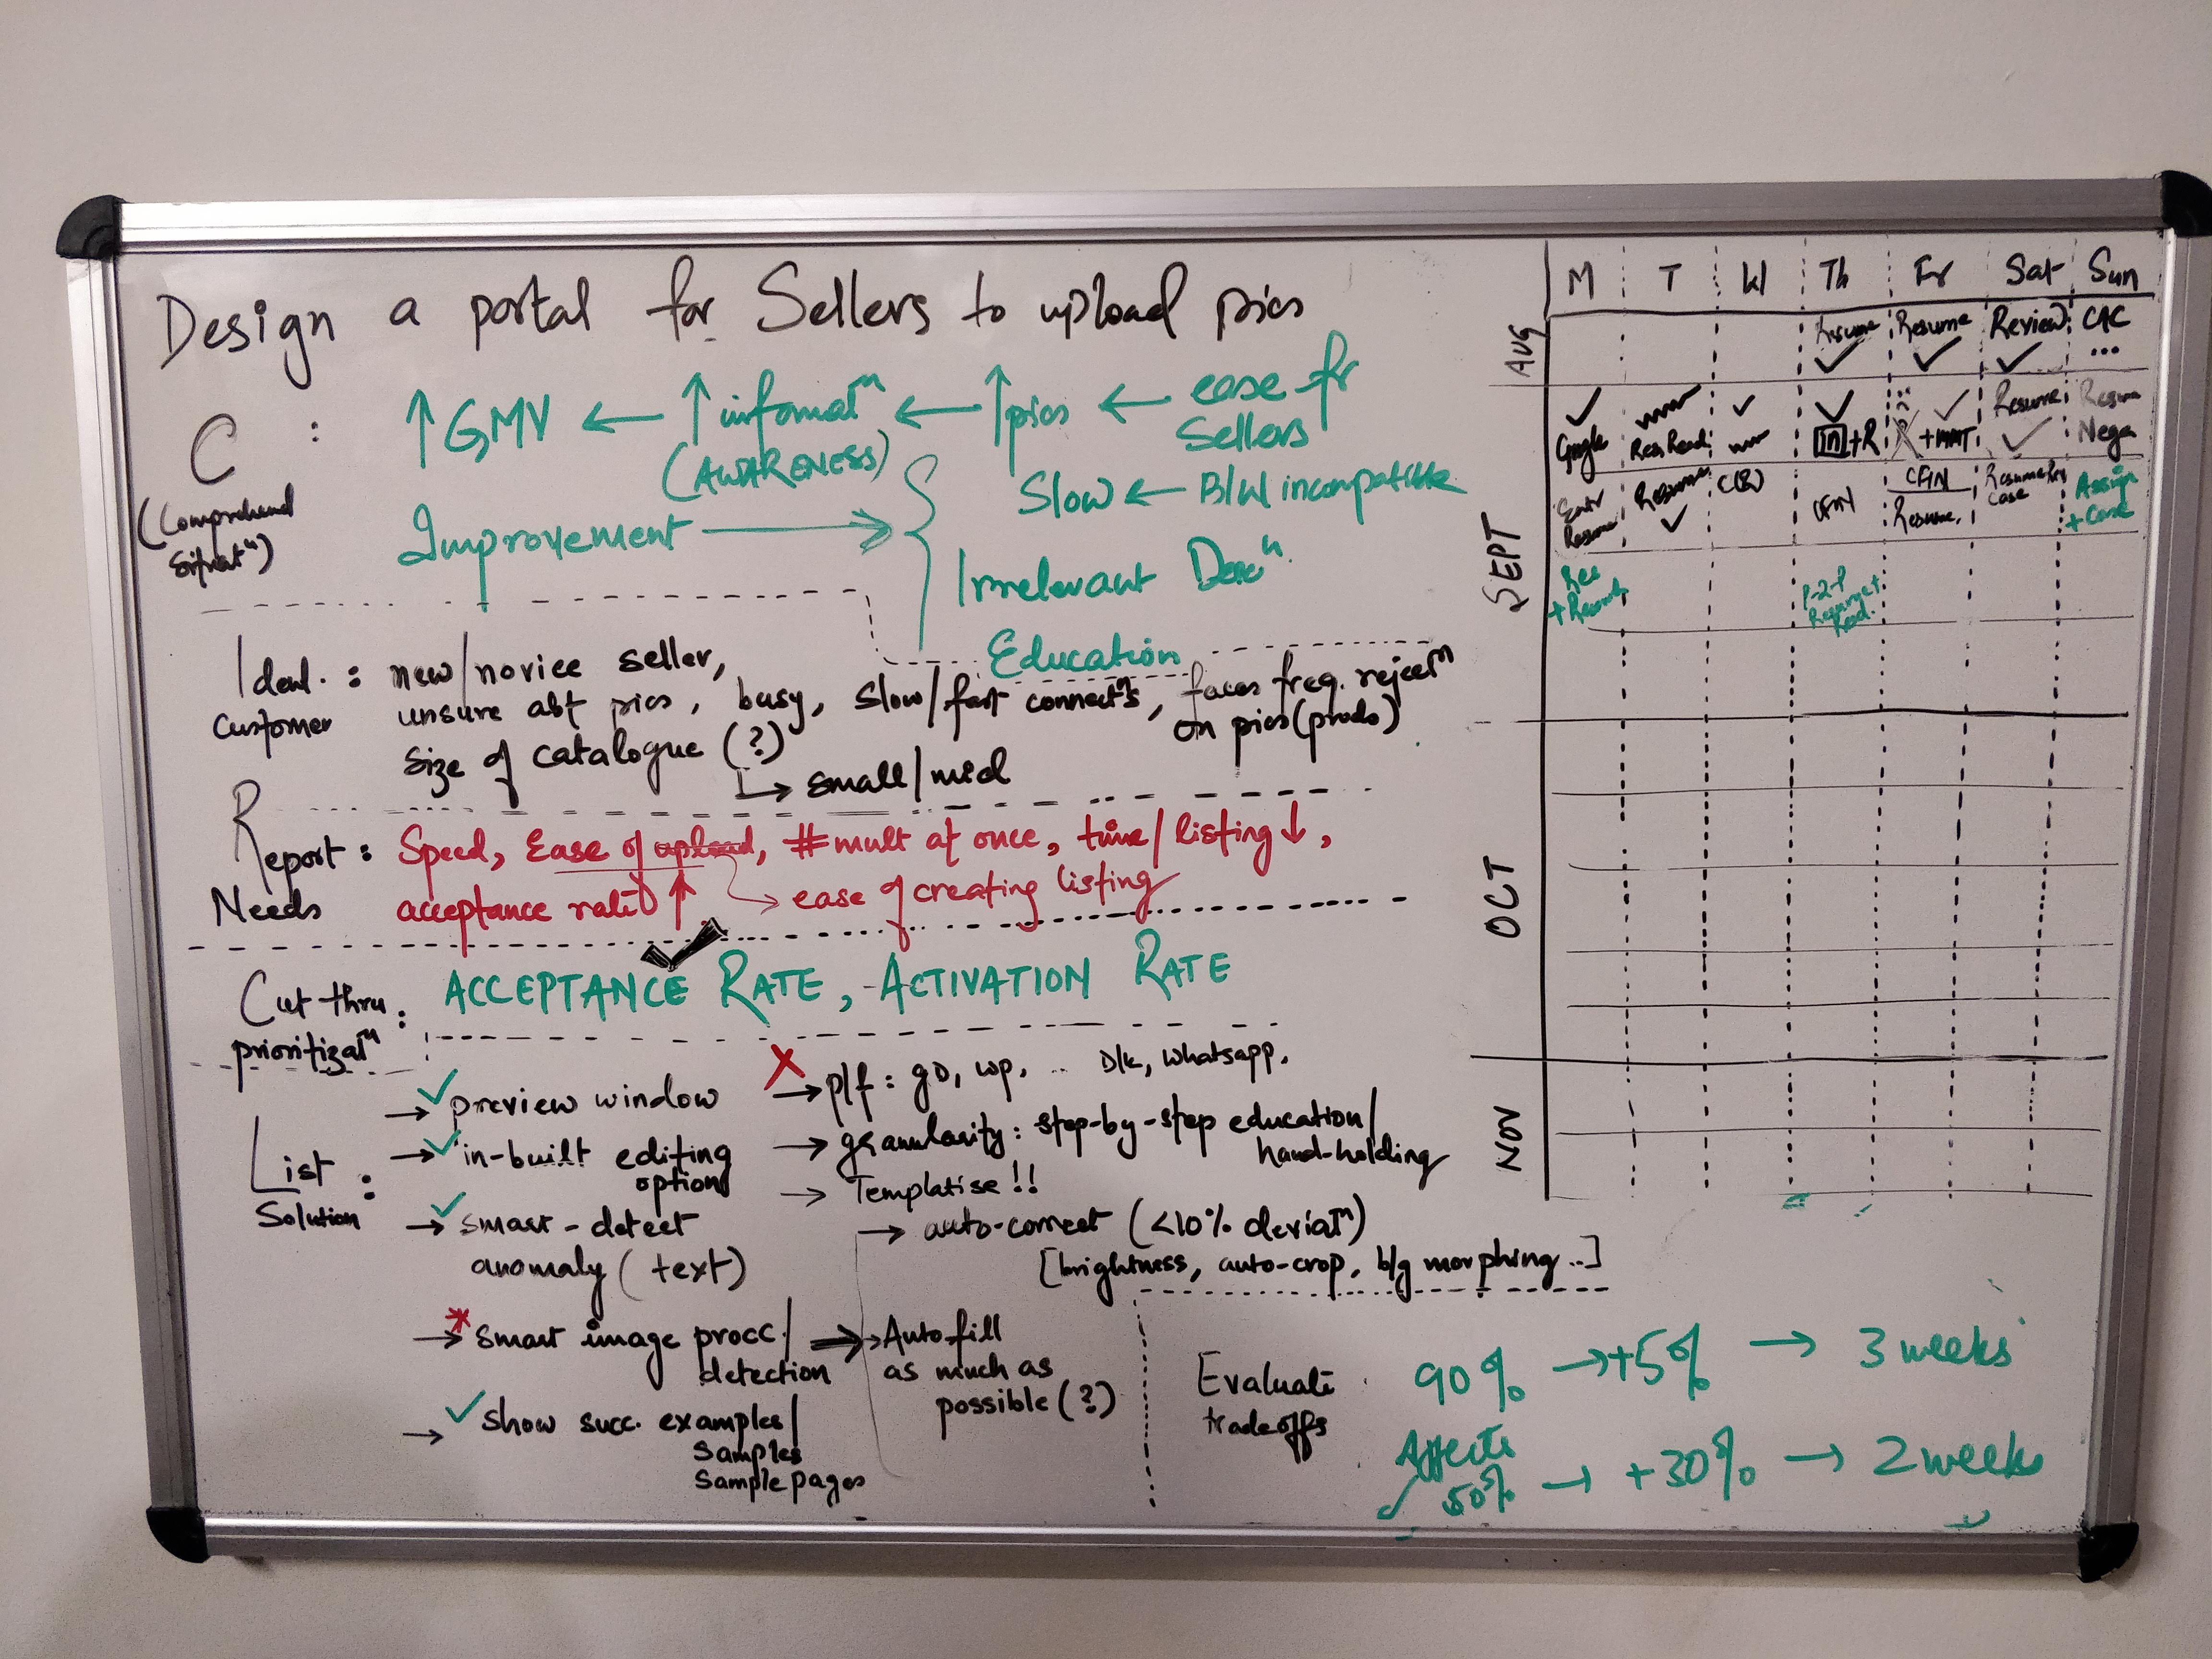 Design a portal for Sellers to upload pics
C :
(Comprehend
Situatⁿ)
↑ GMV ← ↑ informatⁿ ← ↑ pics ← ease fr
(AWARENESS)
Sellers
Slow ← B/W incompatible
Improvement →
Irrelevant Descⁿ
Education
Ideal :
Customer
new/novice seller,
unsure abt pics, busy, slow/fast connectⁿs, faces freq. rejectⁿ
on pics (prods)
size of catalogue (?)
→ small/mid
Report :
Needs
Speed, Ease of upload, # mult at once, time/listing ↓,
acceptance rate ↑ → ease of creating listing
Cut thru :
prioritizatⁿ
ACCEPTANCE RATE, ACTIVATION RATE
List :
Solution
→ ✓ preview window
→ ✓ in-built editing
option
→ ✓ smart-detect
anomaly (text)
→ * smart image procc./
detection
→ ✓ show succ. examples/
samples
sample pages
X → p/f : go, wp, .. D/k, whatsapp,
→ granularity : step-by-step education/
hand-holding
→ Templatise !!
→ auto-correct (<10% deviatⁿ)
[brightness, auto-crop, b/g morphing ..]
→ Auto fill
as much as
possible (?)
Evaluate
tradeoffs
90% → +5% → 3 weeks
Affects
✓ 50% → +30% → 2 weeks
M T W Th Fr Sat Sun
AUG
Resume ✓ Resume ✓ Review ✓ CIC ...
SEPT
✓ Google
Res Read
✓
✓ in +R
✓
Resume ✓
Nega
Resume
Resume ✓
CFIN
Resume
Case
Assign
+ Case
P-2-P
OCT
NOV